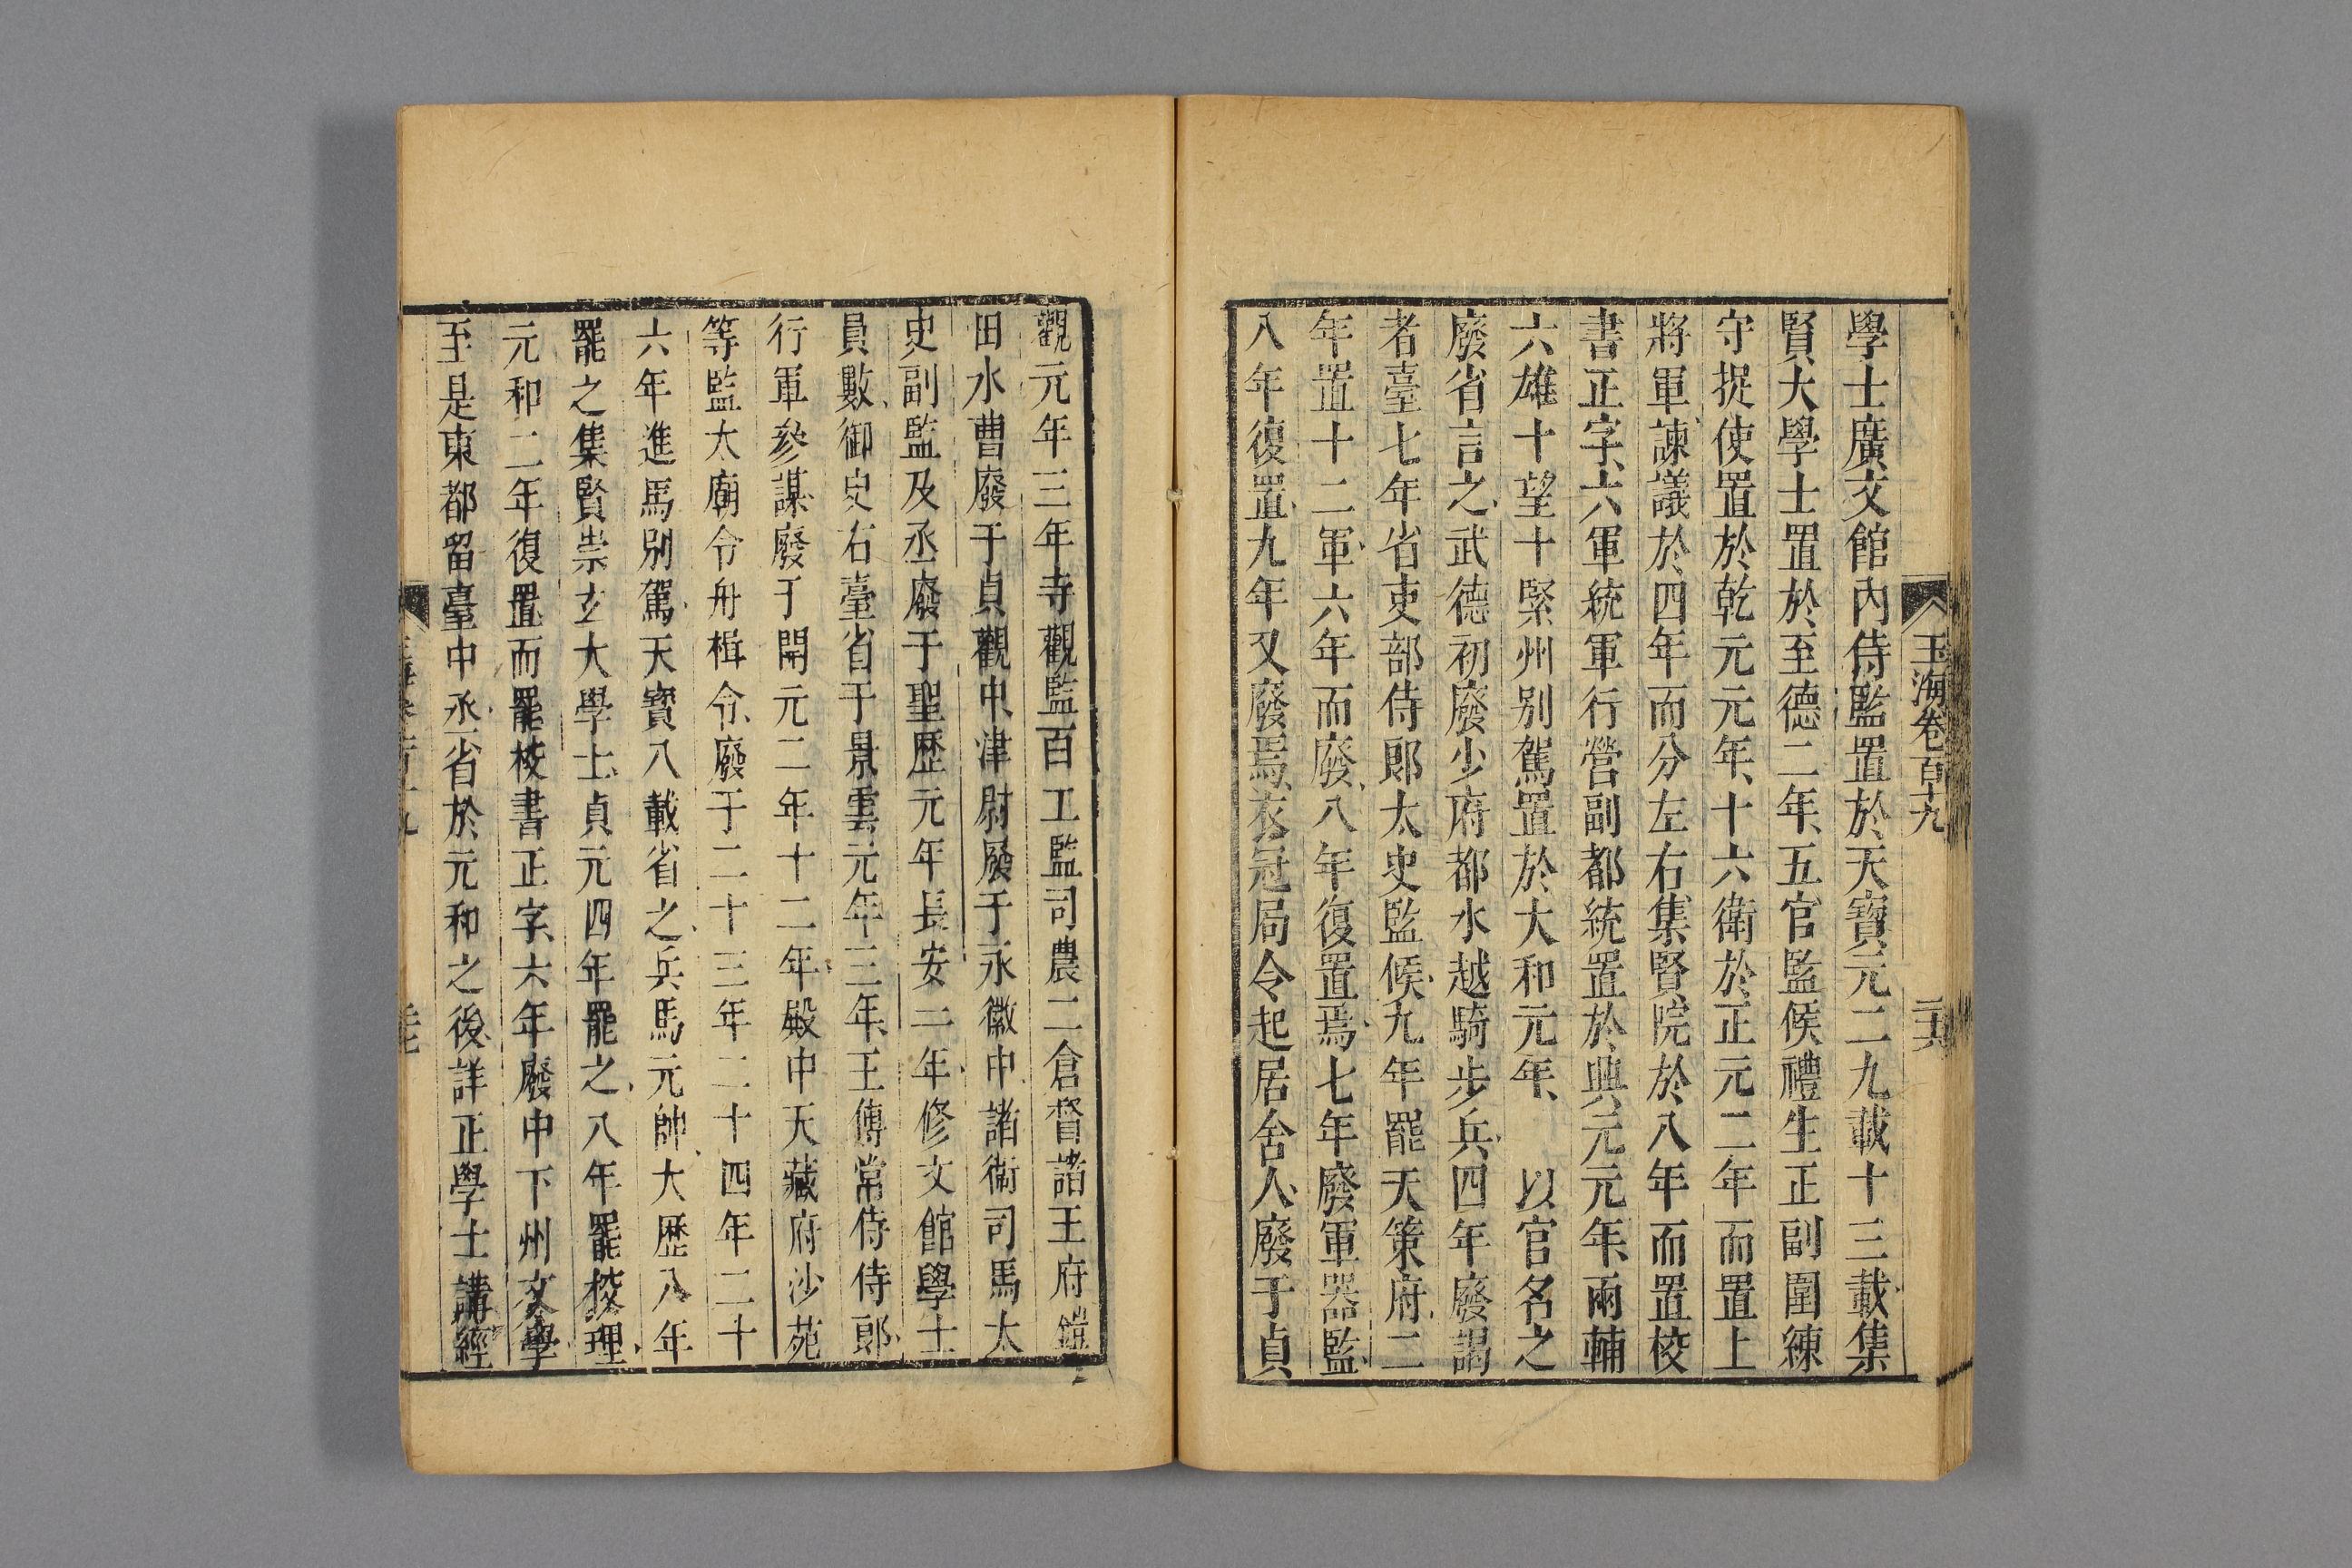 玉海卷百十九
二十六
學士廣文館內侍監置於天寶元二九載十三載集
賢大學士置於至德二年五官監候禮生正副團練
守捉使置於乾元元年十六衛於正元二年而置上
將軍諫議於四年而分左右集賢院於八年而置校
書正字六軍統軍行營副都統置於興元元年兩輔
六雄十望十緊州別駕置於大和元年 以官名之
廢省言之武德初廢少府都水越騎步兵四年廢謁
者臺七年省吏部侍郎太史監候九年罷天策府二
年置十二軍六年而廢八年復置焉七年廢軍器監
八年復置九年又廢焉衣冠局令起居舍人廢于貞
觀元年三年寺觀監百工監司農二倉督諸王府鎧
田水曹廢于貞觀中津尉廢于永徽中諸衞司馬太
史副監及丞廢于聖歷元年長安二年修文館學士
員數御史右臺省于景雲元年三年王傅常侍侍郎
行軍參謀廢于開元二年十二年殿中天藏府沙苑
等監太廟令舟楫令廢于二十三年二十四年二十
六年進馬別駕天寶八載省之兵馬元帥大歷八年
罷之集賢崇玄大學士貞元四年罷之八年罷校理
元和二年復置而罷校書正字六年廢中下州文學
至是東都留臺中丞省於元和之後詳正學士講經